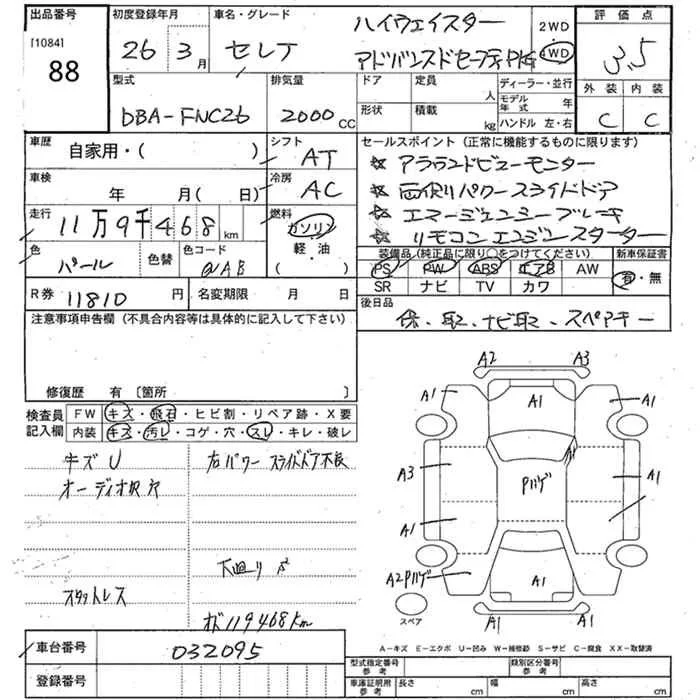 出品番号 初度登録年月 車名・グレード ハイウェイスター 2WD 評価点
[1084] 26 3月 セレナ アドバンスドセーフティPKG 4WD 3.5
88
型式 排気量 ドア 定員 人 ディーラー・並行 外装 内装
DBA-FNC26 2000cc 形状 積載 kg モデル年式 年 C C
ハンドル 左・右
車歴 自家用・( ) シフト AT セールスポイント(正常に機能するものに限ります)
☆ アラウンドビューモニター
車検 年 月( 日) 冷房 AC ☆ 両側パワースライドドア
走行 11万9千468km 燃料 ガソリン ☆ エマージェンシーブレーキ
軽・油 ☆ リモコンエンジンスターター
色 パール 色替 色コード QAB ( )
装備品(純正品に限り○をつけてください) 新車保証書
PS PW ABS エアB AW 有・無
SR ナビ TV カワ
R券 11810円 名変期限 月 日 後日品
保、取、ナビ取、スペアキー
注意事項申告欄(不具合内容等は具体的に記入して下さい)
修復歴 有 [箇所 ]
検査員記入欄 FW キズ・飛石・ヒビ割・リペア跡・X要
内装 キズ・汚レ・コゲ・穴・スレ・キレ・破レ
キズU 右パワースライドドア不良
オーディオ穴
下廻りS
スタットレス
オド119468km
A2 A3
A1 A1 A1
A1
A3 Pハゲ A1
A1
A2Pハゲ A1
A1 A1
スペア
A-キズ E-エクボ U-凹み W-補修跡 S-サビ C-腐食 XX-取替済
車台番号 032095
登録番号
型式指定番号 参考 類別区分番号 参考
車庫証明用 参考 長さ cm 幅 cm 高さ cm